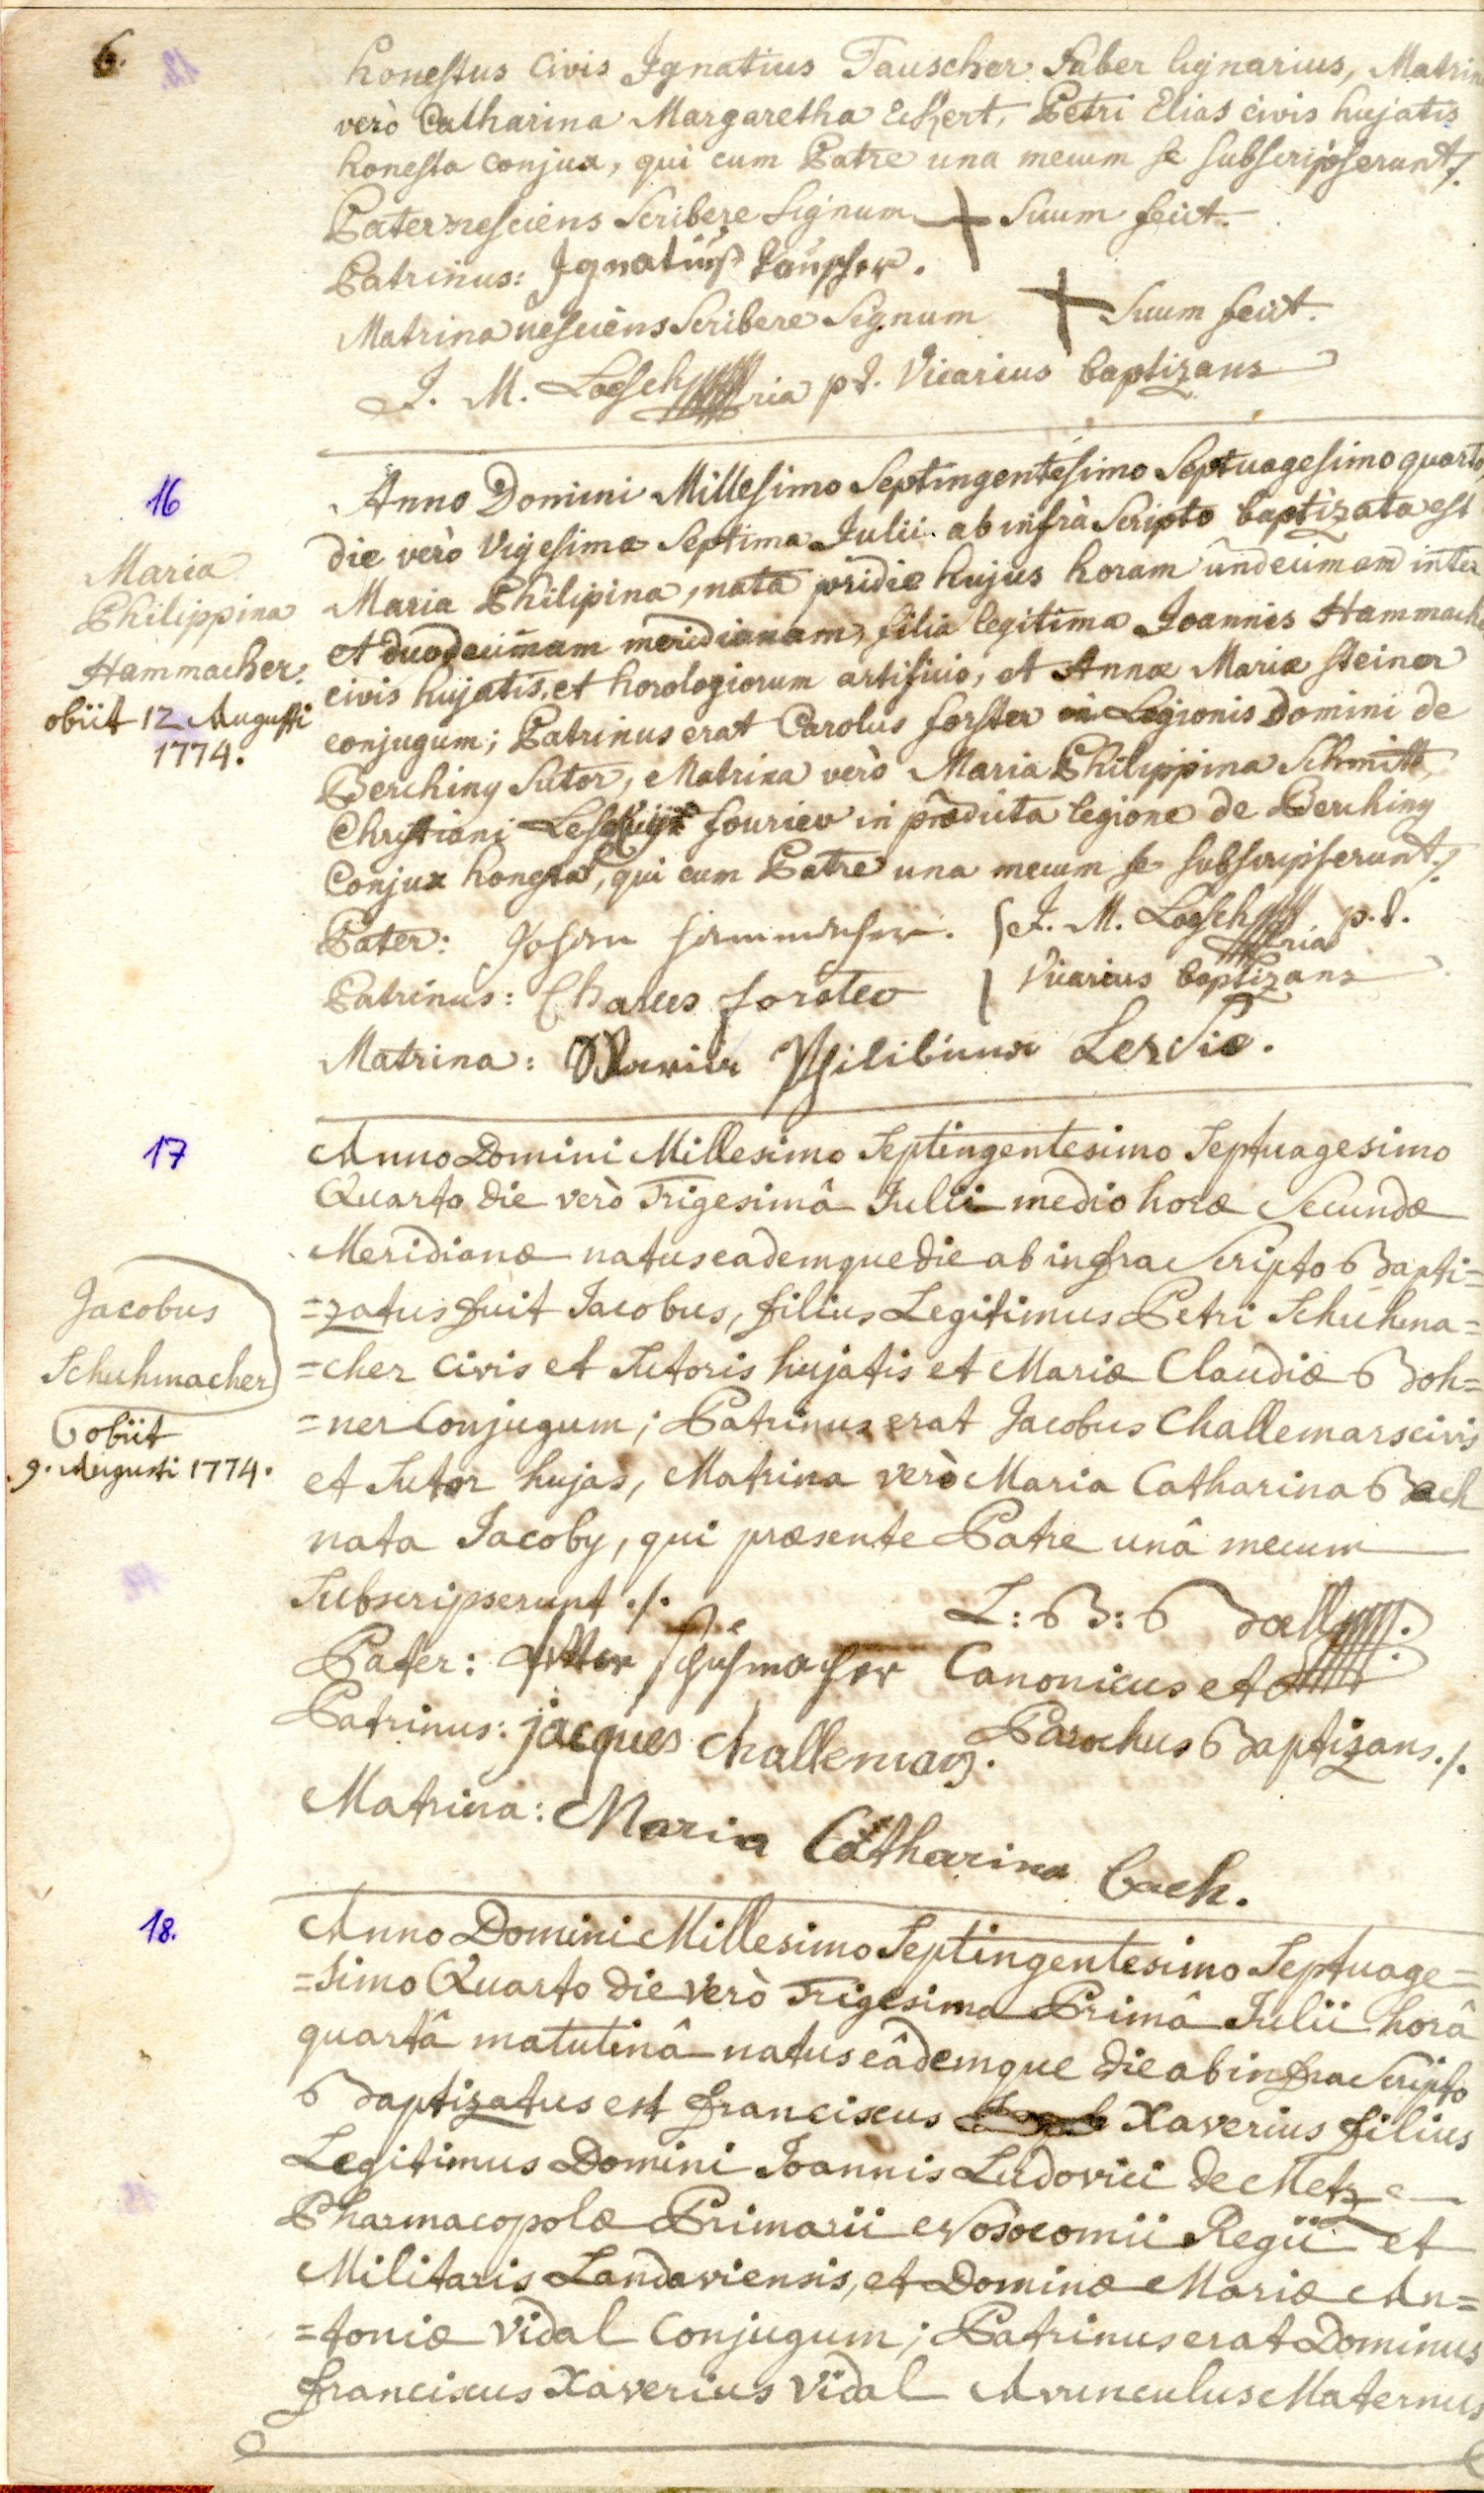 6.
honestus Civis Ignatius Tauscher Faber lignarius, Matrin
verò Catharina Margaretha Eckert, Petri Elias civis hujatis
honesta conjux, qui cum Patre una mecum se subscripserunt ./.
Pater nesciens Scribere Signum + Suum fecit.
Patrinus: Ignatius Tauscher.
Matrina nesciens Scribere Signum + Suum fecit.
J. M. Loesch ria p.t. Vicarius baptizans
16
Maria
Philippina
Hammacher.
obiit 12 Augusti
1774.
Anno Domini Millesimo Septingentesimo Septuagesimo quarto,
die verò Vigesima Septima Julii ab infrà Scripto baptizata est
Maria Philipina, nata pridie hujus horam undecimam inter
et duodecimam meridianam, filia legitima Joannis Hammache
civis hujatis, et horologiorum artificis, et Annæ Mariæ Steiner
conjugum; Patrinus erat Carolus forster Legionis Domini de
Berchiny Sutor, Matrina verò Maria Philippina Schmitt,
Christiani fourier in prædicta legione de Berchiny
Conjux honesta, qui cum Patre una mecum se subscripserunt ./.
Pater: Johan Hammacher. J. M. Loesch ria p.t.
Patrinus: Charles forster Vicarius baptizans
Matrina: Maria Philibina
17
Jacobus
Schuhmacher
obiit
9. Augusti 1774.
Anno Domini Millesimo Septingentesimo Septuagesimo
Quarto die verò Trigesimâ Julii medio horæ Secundæ
Meridianæ natus eademque die ab infra Scripto Bapti=
=zatus fuit Jacobus, filius Legitimus Petri Schuhma=
=cher Civis et Sutoris hujatis et Mariæ Claudiæ Boh=
=ner Conjugum; Patrinus erat Jacobus Challemars civis
et Sutor hujas, Matrina verò Maria Catharina Bach
nata Jacoby, qui præsente Patre unâ mecum
Subscripserunt ./.
L: B: Ball
Pater: Petter schuhmacher Canonicus et
Patrinus: jacques challemars. Parochus Baptizans ./.
Matrina: Maria Catharina bach.
18.
Anno Domini Millesimo Septingentesimo Septuage=
=simo Quarto die verò Trigesima Primâ Julii horâ
quartâ matutinâ natus eâdemque die ab infra Scripto
Baptizatus est franciscus Xaverius filius
Legitimus Domini Joannis Ludovici de Metz
Pharmacopolæ Primarii Nosocomii Regii et
Militaris Landaviensis, et Dominæ Mariæ An=
=toniæ Vidal Conjugum; Patrinus erat Dominus
franciscus Xaverius Vidal Avunculus Maternus